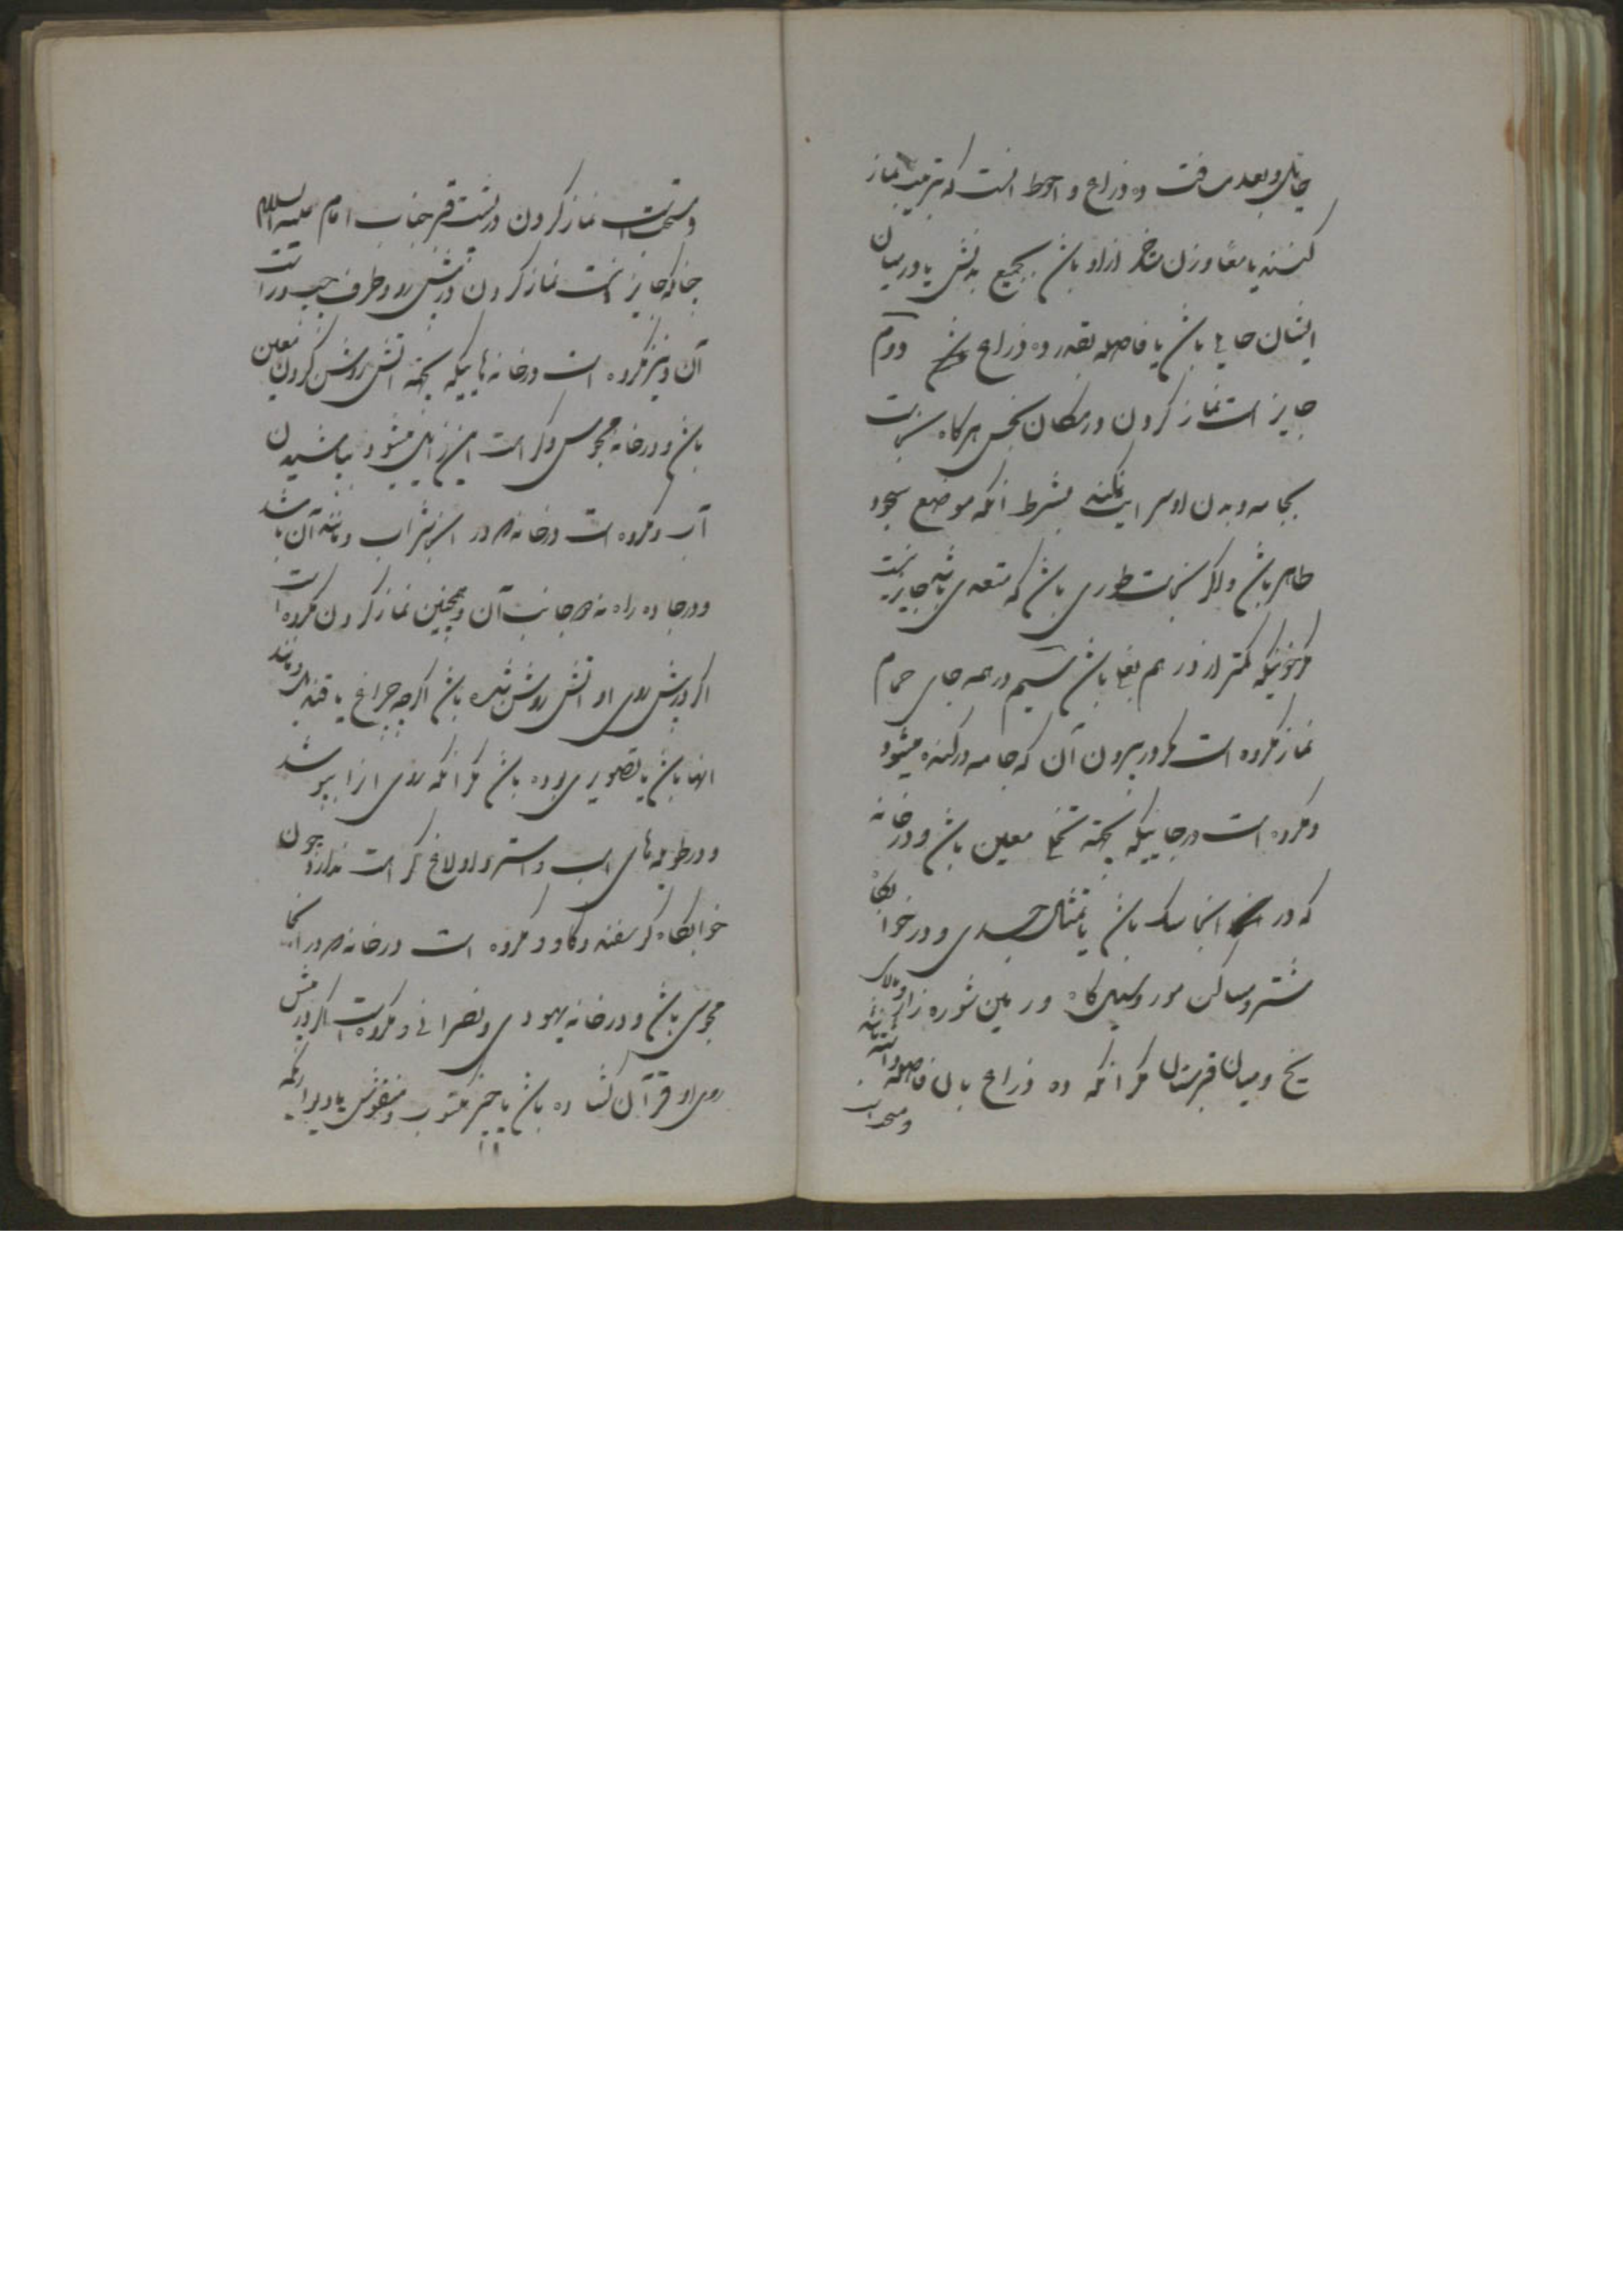 حایل و بعد مسافت ده ذراع و احوط انست که بترتیب نماز
کنند یا معا و زن متاخر از او باشد بجمیع بدنش یا در میان
ایشان حایل باشد یا فاصله بقدر ده ذراع باشد دوم
جایز است نماز کردن در مکان نجس هرگاه نجاست
بجامه و بدن او سرایت نکند بشرط انکه موضع سجود
طاهر باشد و اگر نجاست طوری باشد که متعدی باشد جایز نیست
مگر خونیکه کمتر از درهم بغلی باشد سیم در همه جای حمام
نماز مکروه است مگر در بیرون آن که جامه در کنده میشود
و مکروه است در جاییکه بجهة تخلی معین باشد و در خانه
که در انجا سک باشد یا تمثال جسدی و در خوابگاه
شتر و مساکن مور و سیل کاه و زمین شوره زار و بالای
یخ و میان قبرستان مگر انکه ده ذراع بان فاصله داشته باشد
و مستحب است
و مستحب است نماز کردن در پشت قبر جناب امام علیه السلام
چنانکه جایز نیست نماز کردن در پیش رو و طرف چپ و راست
آن و نیز مکروه است در خانه هاییکه بجهة اتش روشن کردن معین
باشد و در خانه مجوس و کراهت این زایل میشود بپاشیدن
آب و مکروه است در خانه که در او شراب و مانند آن باشد
و در جاده راه نه در جانب آن و همچنین نماز کردن مکروه است
اگر در پیش روی او اتش روشن شده باشد اگر چه چراغ یا قندیل و مانند
انها باشد یا تصویری بوده باشد مگر انکه روی انرا بپوشد
و در طویله های اسب و استر و اولاغ کراهت ندارد چون
خوابگاه کوسفند و کاو و مکروه است در خانه که در انجا
مجوسی باشد و در خانه یهودی و نصرانی و مکروه است اگر در پیش
روی او قرآن کشاده باشد یا چیز مکتوب و منقوش یا دیواریکه